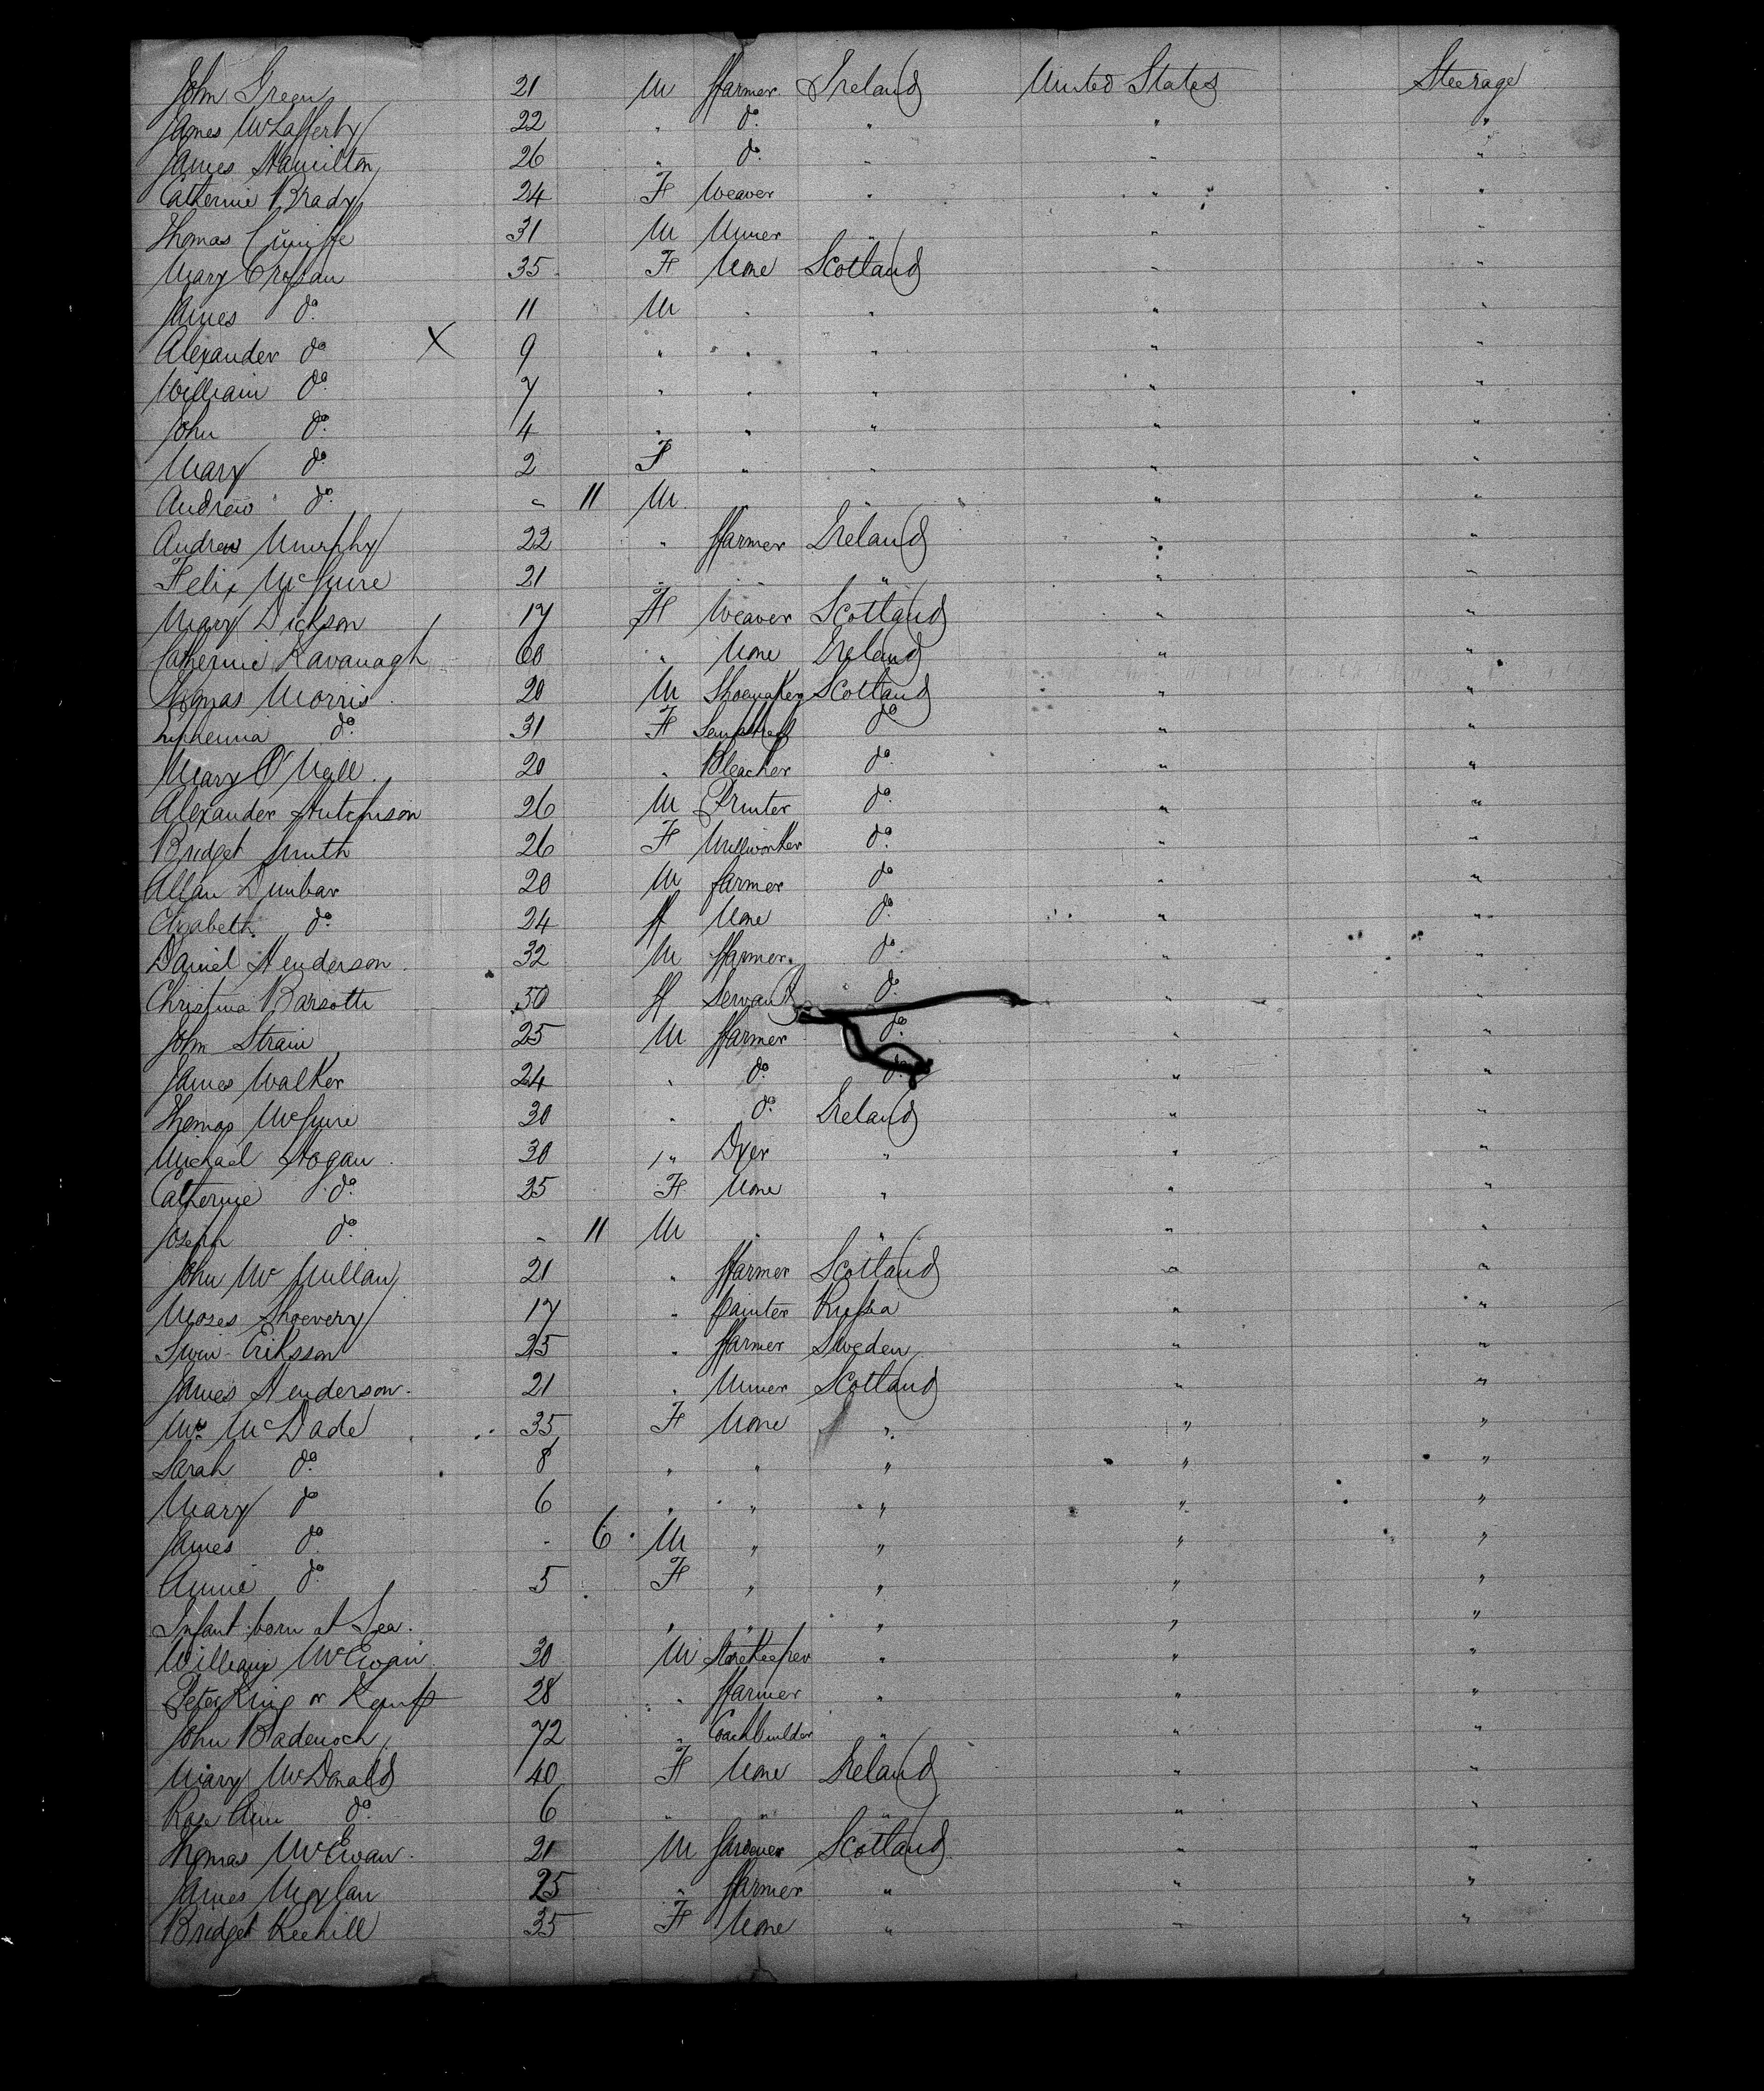 John Green 21 M ffarmer Ireland United States Steerage
James McLafferty 22 " do " " "
James Hamilton 26 " do " " "
Catherine Brady 24 F Weaver " " "
Thomas Cuniffe 31 M Miner " " "
Mary Crossan 35 F None Scotland " "
James do 11 M " " " "
Alexander do X 9 " " " " "
William do 7 " " " " "
John do 4 " " " " "
Mary do 2 F " " " "
Andrew do - 11 M " "
Andrew Murphy 22 " ffarmer Ireland " "
Felix McGuire 21 " " " " "
Mary Dickson 17 F Weaver Scotland " "
Catherine Kavanagh 60 " None Ireland " "
Thomas Morris 20 M Shoemaker Scotland " "
Euphemia do 31 F Sempstress do " "
Mary O'Neill 20 " Bleacher do " "
Alexander Hutchison 26 M Printer do " "
Bridget Smith 26 F Millworker do " "
Allan Dunbar 20 M farmer do " "
Elizabeth do 24 ff None do " "
Daniel Henderson 32 M ffarmer do " "
Christina Barsotti 50 ff Servant do " "
John Strain 25 M ffarmer do " "
James Walker 24 " do do " "
Thomas McGuire 30 " do Ireland " "
Michael Hogan 30 " Dyer " " "
Catherine do 25 F None " " "
Joseph do - 11 M " " " "
John McMillan 21 " ffarmer Scotland " "
Moses 17 " painter Russia " "
Swen Eriksson 25 " ffarmer Sweden " "
James Henderson 21 " Miner Scotland " "
Mrs McDade 35 F None " " "
Sarah do 8 " " " " "
Mary do 6 " " " " "
James do - 6 M " " " "
Annie do 5 F " " " "
Infant born at Sea " " " " "
William McEwan 30 M Storekeeper " " "
Peter King or Kemp 28 " ffarmer " " "
John Badenoch 72 " Coachbuilder " " "
Mary McDonald 40 F None Ireland " "
Rose Ann do 6 " " " " "
Thomas McEwan 21 M Gardener Scotland " "
James 25 " ffarmer " " "
Bridget Keehill 35 F None " " "